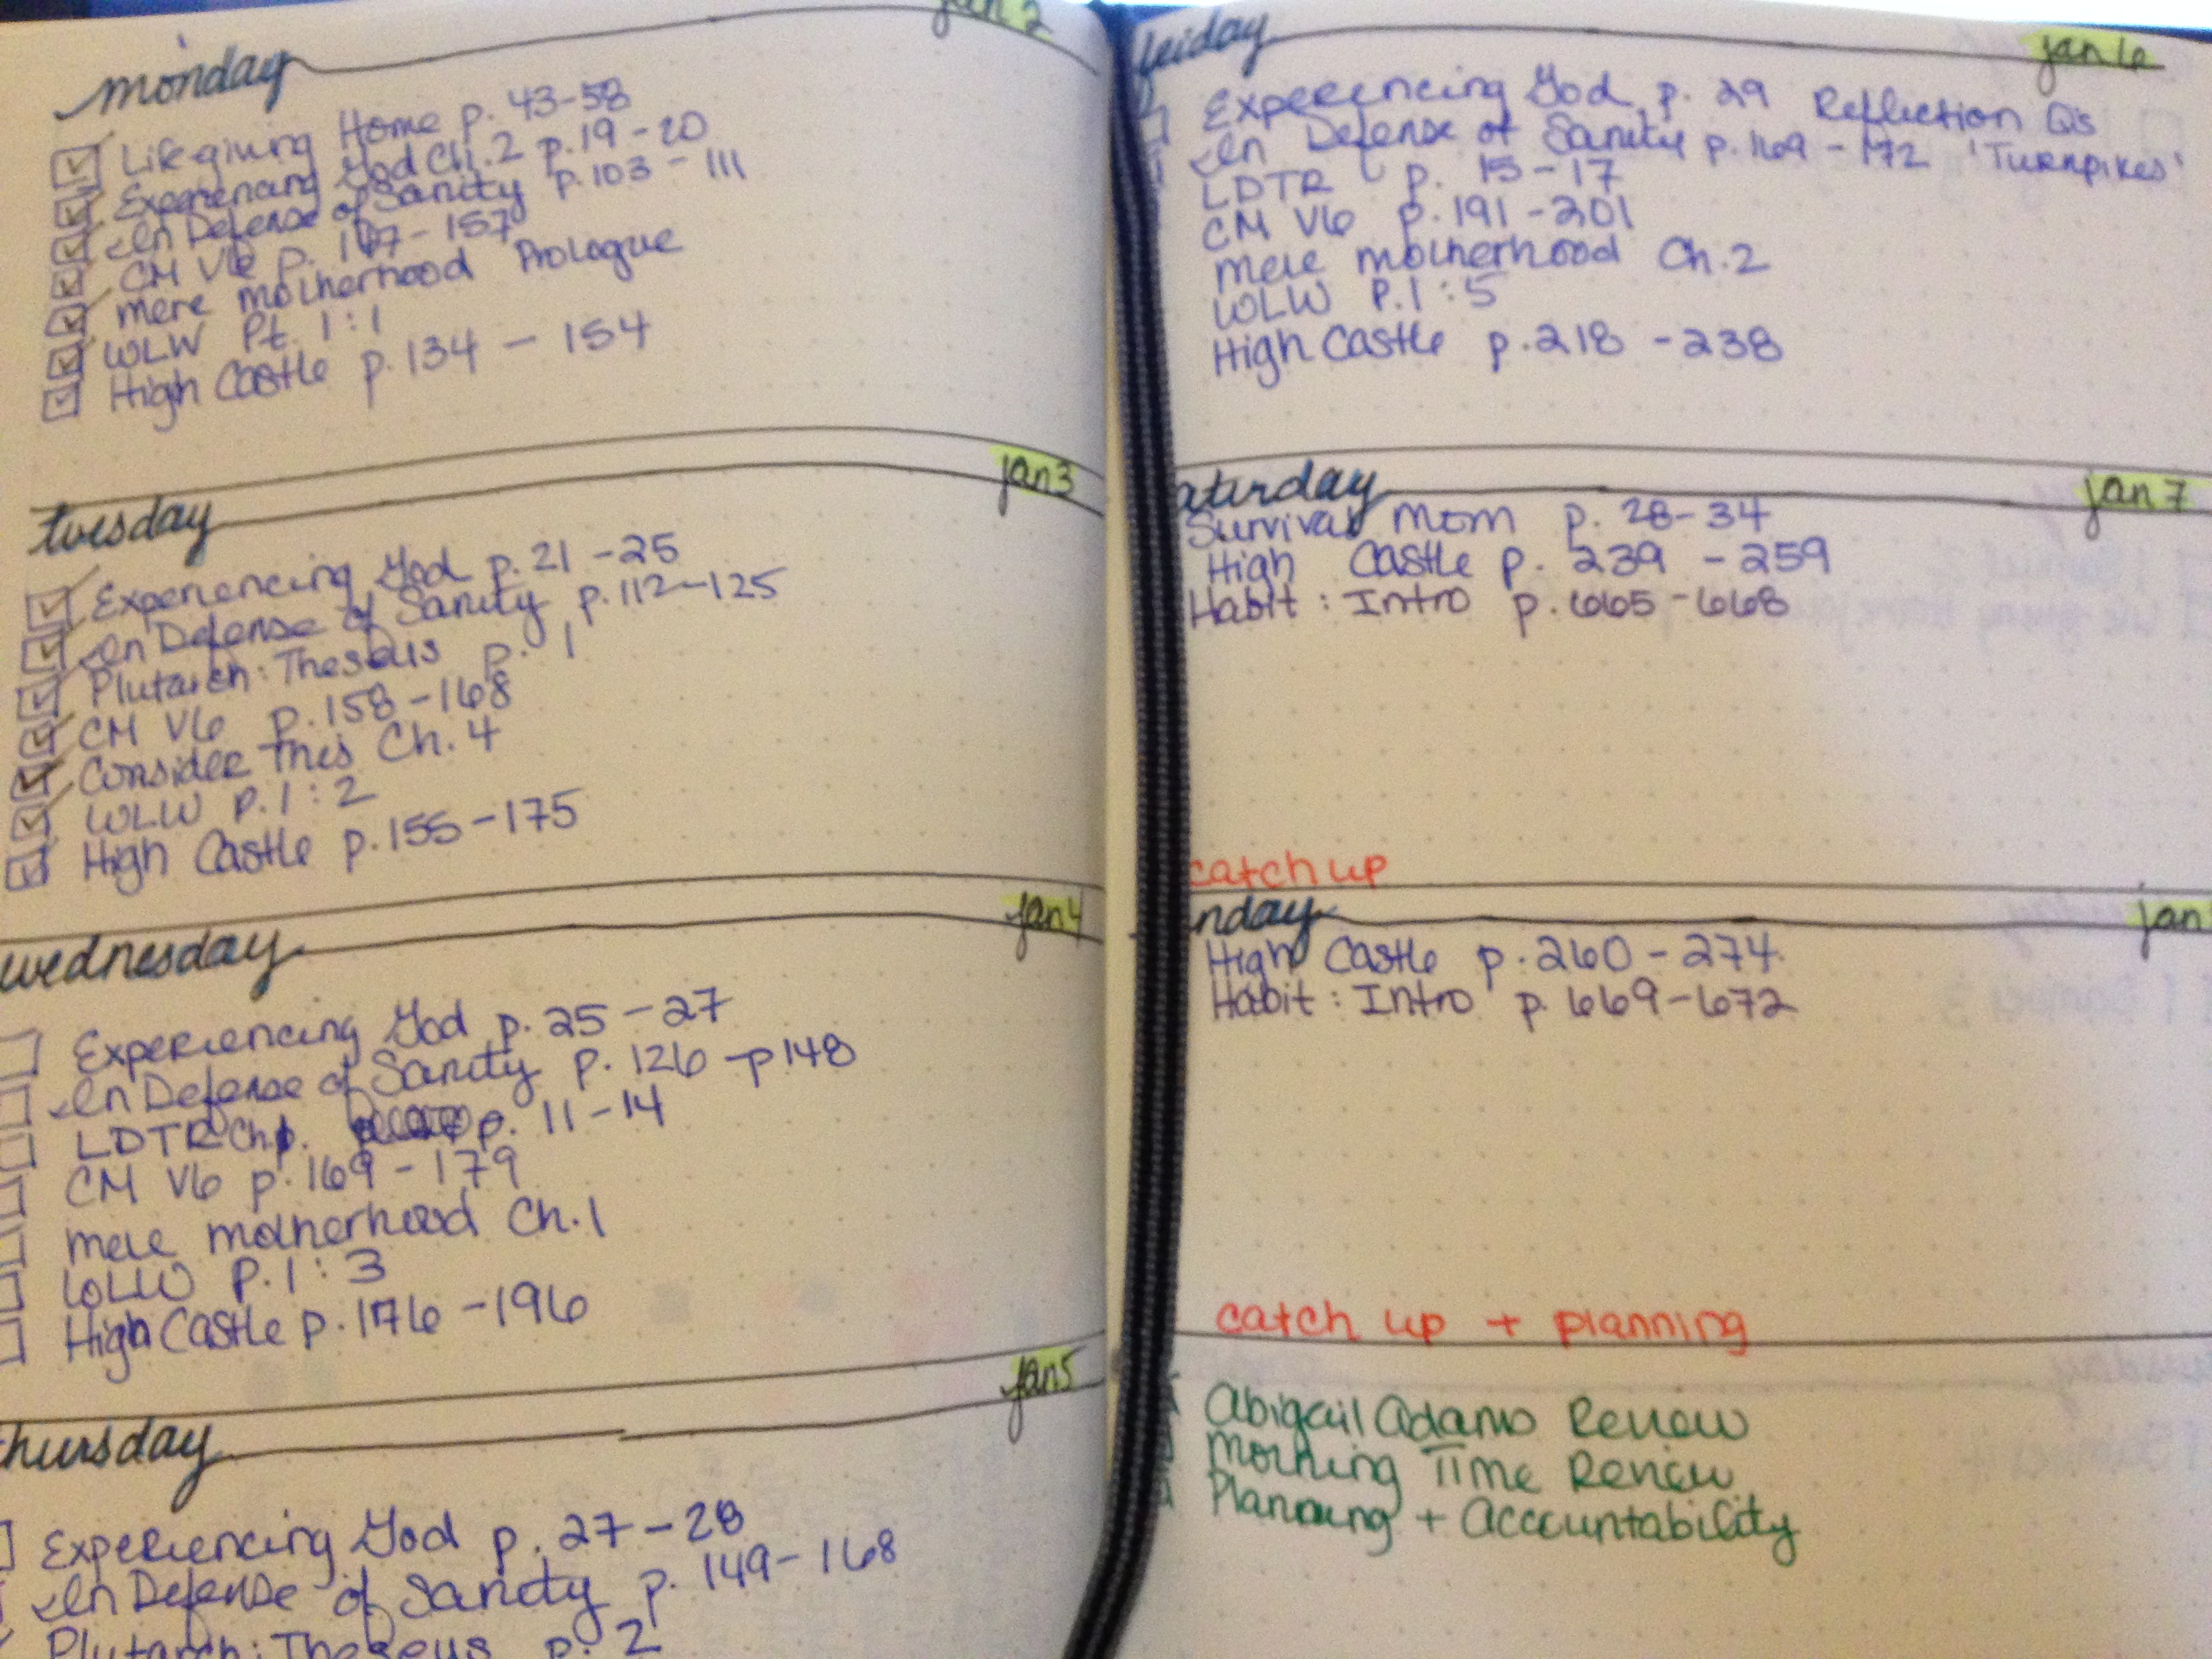 monday jan 2
Lifegiving Home p. 43-58
Experiencing God Ch. 2 p. 19-20
In Defense of Sanity p. 103-111
CM V6 p. 147-157
mere motherhood Prologue
WLW Pt. 1:1
High Castle p. 134 - 154
tuesday jan 3
Experiencing God p. 21-25
In Defense of Sanity p. 112-125
Plutarch: Theseus p. 1
CM V6 p. 158-168
Consider This Ch. 4
WLW P. 1:2
High Castle p. 155-175
wednesday jan 4
Experiencing God p. 25-27
In Defense of Sanity p. 126 - p 148
LDTR Ch 1. p. 11-14
CM V6 p. 169-179
mere motherhood Ch. 1
WLW P. 1:3
High Castle p. 176-196
thursday jan 5
Experiencing God p. 27-28
In Defense of Sanity p. 149-168
Plutarch: Theseus p. 2
friday jan 6
Experiencing God p. 29 Reflection Qs
In Defense of Sanity p. 169-172 'Turnpikes'
LDTR p. 15-17
CM V6 p. 191-201
mere motherhood Ch. 2
WLW P. 1:5
High Castle p. 218-238
aturday jan 7
Survival Mom p. 28-34
High Castle p. 239-259
Habit: Intro p. 665-668
catch up
nday jan
High Castle p. 260-274
Habit: Intro p. 669-672
catch up + planning
Abigail Adams Review
Morning Time Review
Planning + Accountability